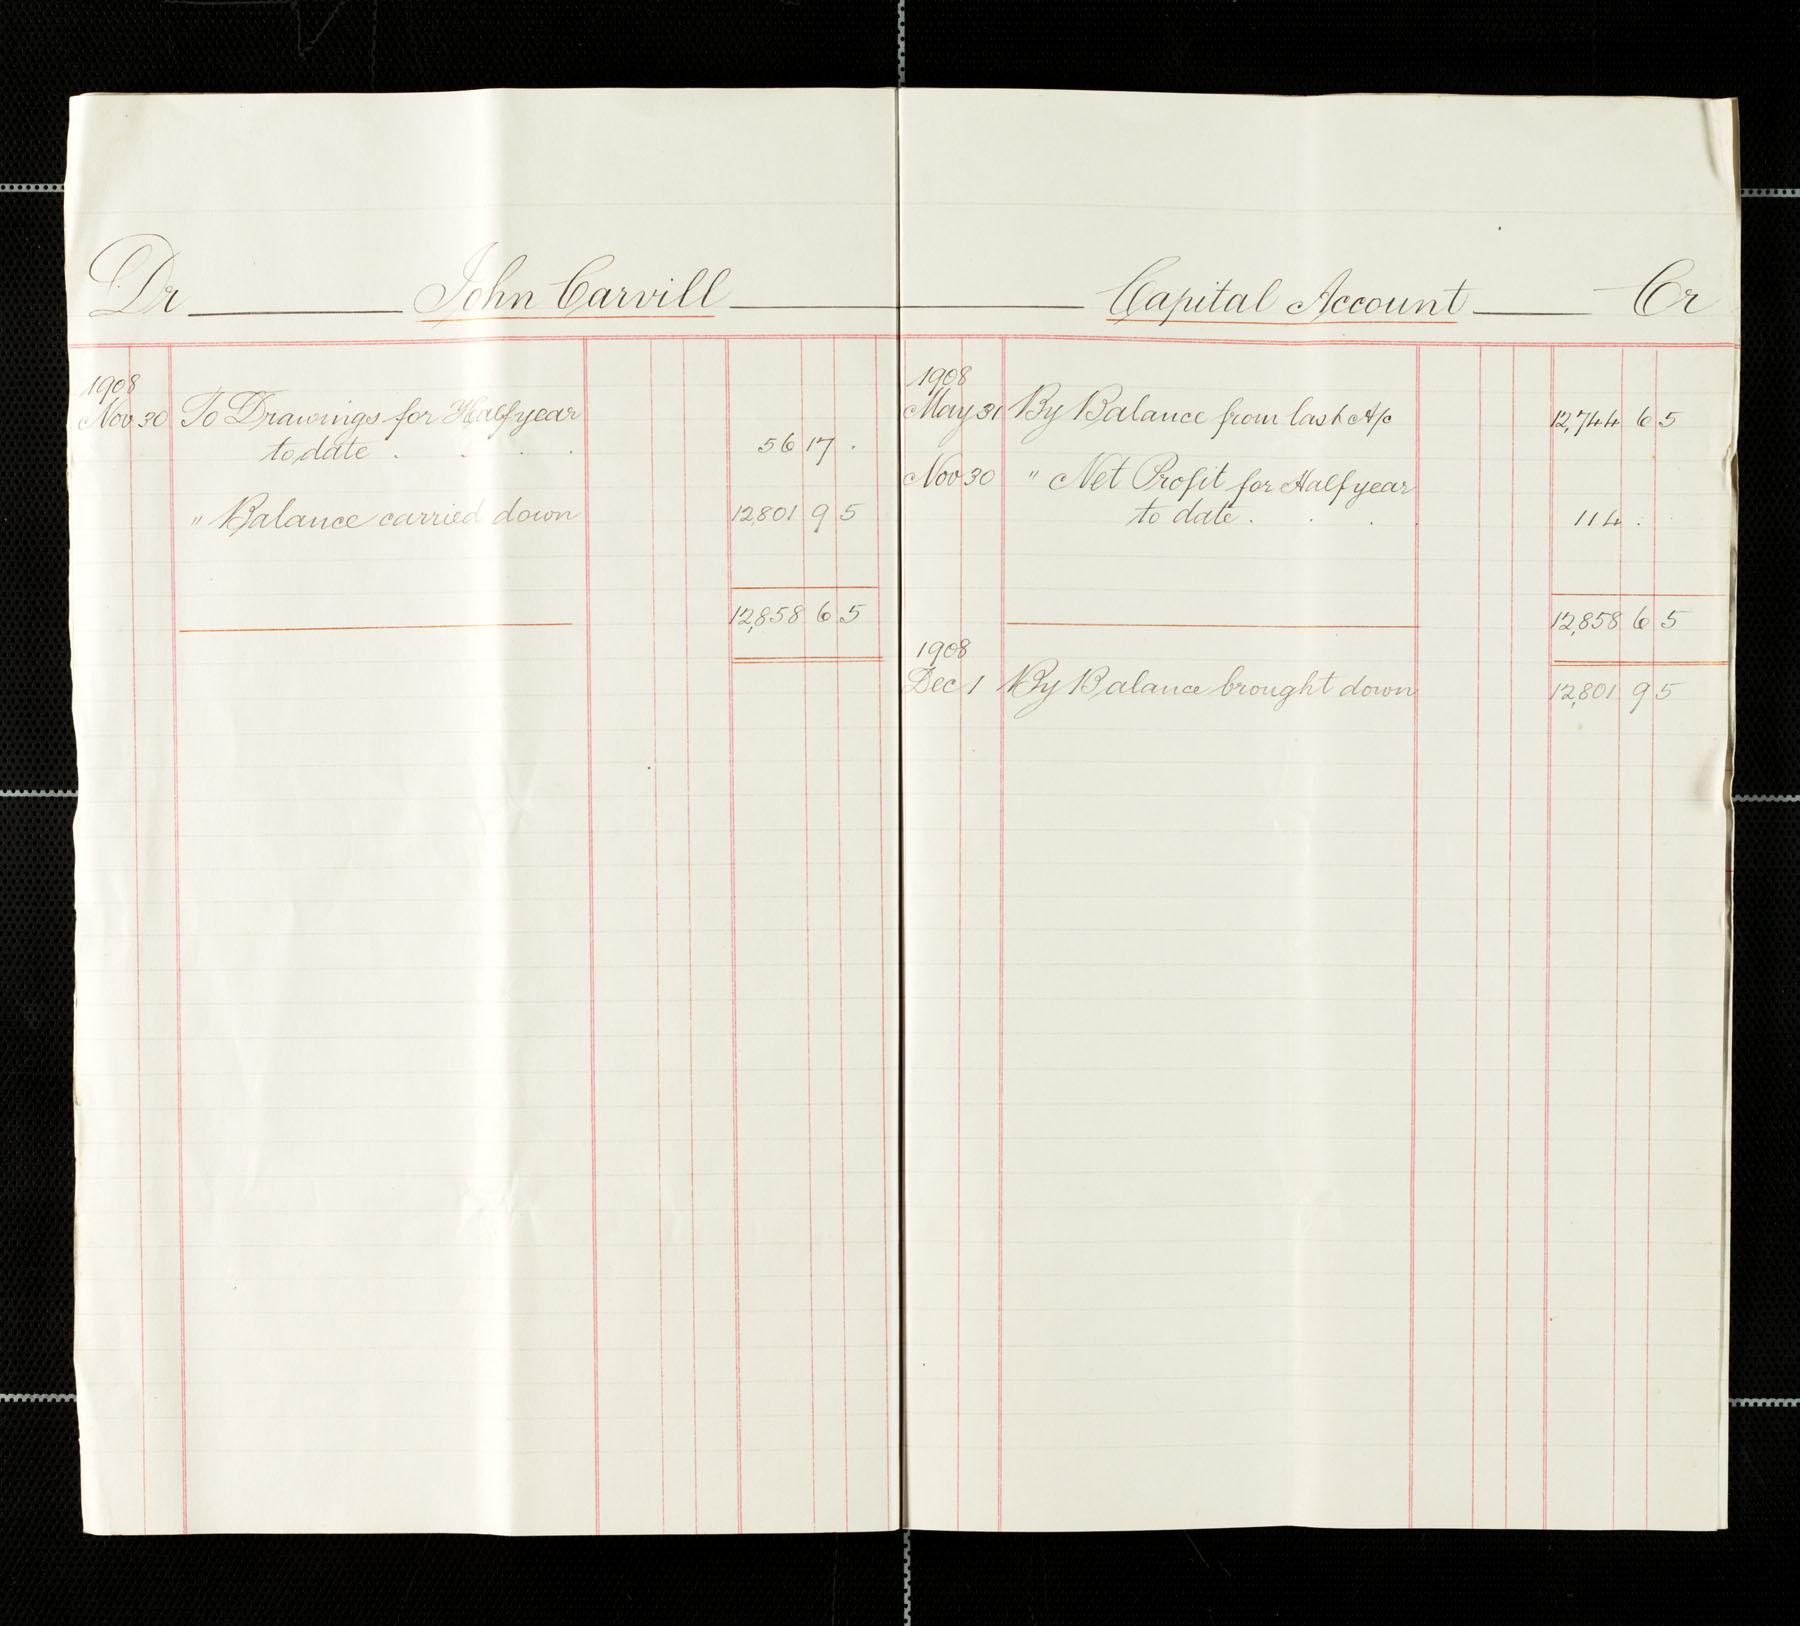 Dr John Carvill Capital Account Cr
1908
Nov 30 To Drawings for Halfyear
to date . . . . 56 17 .
" Balance carried down 12,801 9 5
12,858 6 5
1908
May 31 By Balance from last A/c 12,744 6 5
Nov 30 " Net Profit for Halfyear
to date . . . . 114 . .
12,858 6 5
1908
Dec 1 By Balance brought down 12,801 9 5